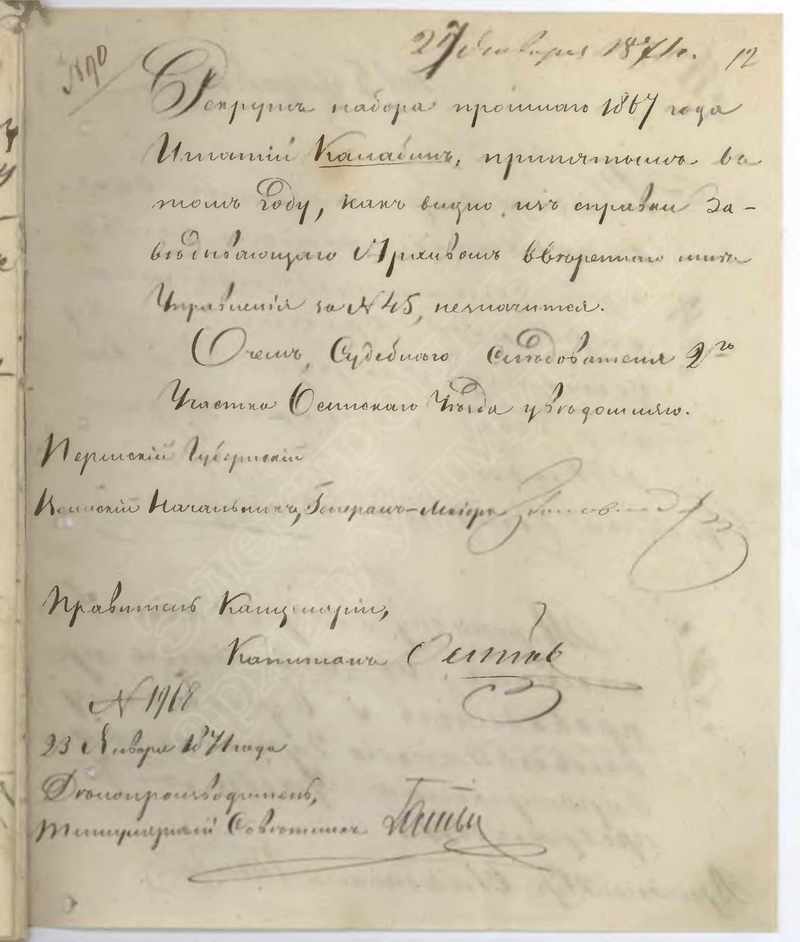 27 Января 1871 г. 12
№ 90
Рекрутъ набора прошлаго 1867 года
Игнатій Калабинъ, принятымъ въ
томъ году, какъ видно изъ справки За-
вѣдывающаго Архивомъ ввѣреннаго мнѣ
Управленія за № 45, незначится.
О чемъ, Судебнаго Слѣдователя 2го
Участка Осинскаго Уѣзда увѣдомляю.
Пермскій Губернскій
Воинскій Начальникъ, Генералъ-Маіоръ
Правитель Канцеляріи,
Капитанъ
№ 1968
23 Января 1871 года
Дѣлопроизводитель,
Титулярный Совѣтникъ